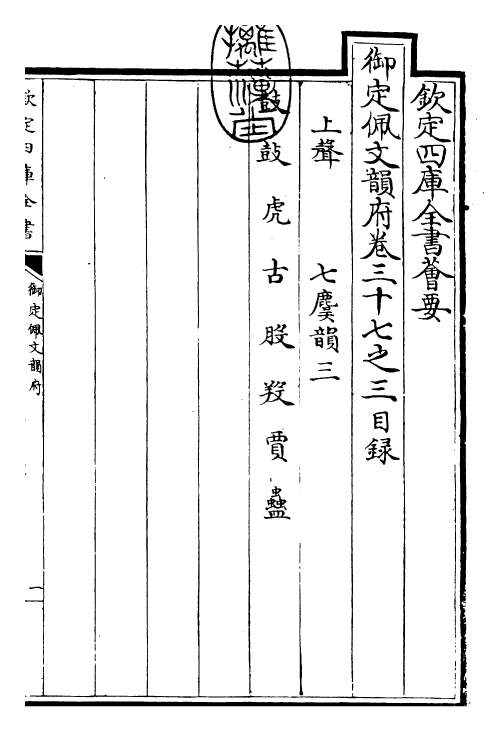 欽定四庫全書薈要
御定佩文韻府卷三十七之三目録
上聲 七麌韻三
鼓 虎 古 股 羖 賈 蠱
欽定四庫全書
御定佩文韻府
一